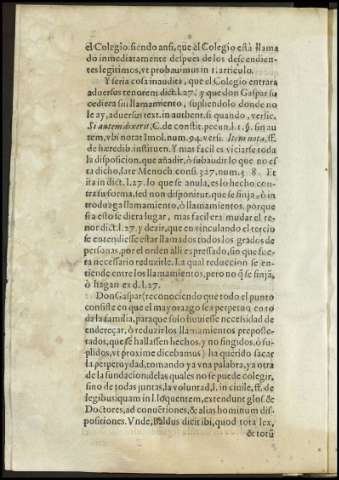 el Colegio. siendo ansi, que el Colegio està llama
do inmediatamente despues de los descendien
tes legitimos, vt probauimus in 1. articulo.
Y seria cosa inaudita, que el Colegio entrara
aduersus tenorem dict. l. 27. y que don Gaspar su
cediera sin llamamiento, supliendolo donde no
le ay, aduersus text. in authent. si quando, versic.
Si autem dixerit, C. de constit. pecun. l. 1. §. sin au
tem, vbi notat Imol. num. 94. versi. Item nota, ff.
de hæredib. instituen. Y mas facil es viciarse toda
la disposicion, que añadir, ò subaudir lo que no es
ta dicho, late Menoch. consi. 327. num. 5 8. Et
ita in dict. l. 27. lo que se anula, es lo hecho con
tra su forma, sed non disponitur, que se finja, ò in
troduzga llamamiento, ò llamamientos, porque
si a esto se diera lugar, mas facil era mudar el te
nor dict. l. 27. y dezir, que en vinculando el tercio
se entendiesse estar llamados todos los grados de
personas, por el orden alli expressado, sin que fue
ra necessario reduzirle. La qual reduccion se en-
tiende entre los llamamientos, pero no q̃ se finjã,
ò fragan ex d. l. 27.
Don Gaspar (reconociendo que todo el punto
consiste en que el mayorazgo sea perpetuo en to
da la familia, para que solo huuiesse necessidad de
endereçar, ò reduzir los llamamientos preposte-
rados, que se hallassen hechos, y no fingidos, ò su-
plidos, vt proxime dicebamus) ha querido sacar
la perpetuydad, tomando ya vna palabra, ya otra
de la fundacion de las quales no se puede colegir,
sino de todas juntas, la voluntad, l. in ciuile, ff. de
legibus iquam in l. loquentem, extendunt glos. &
Doctores, ad conuctiones, & alias hominum dis-
positiones. Vnde, Baldus dicit ibi, quod tota lex,
& totũ